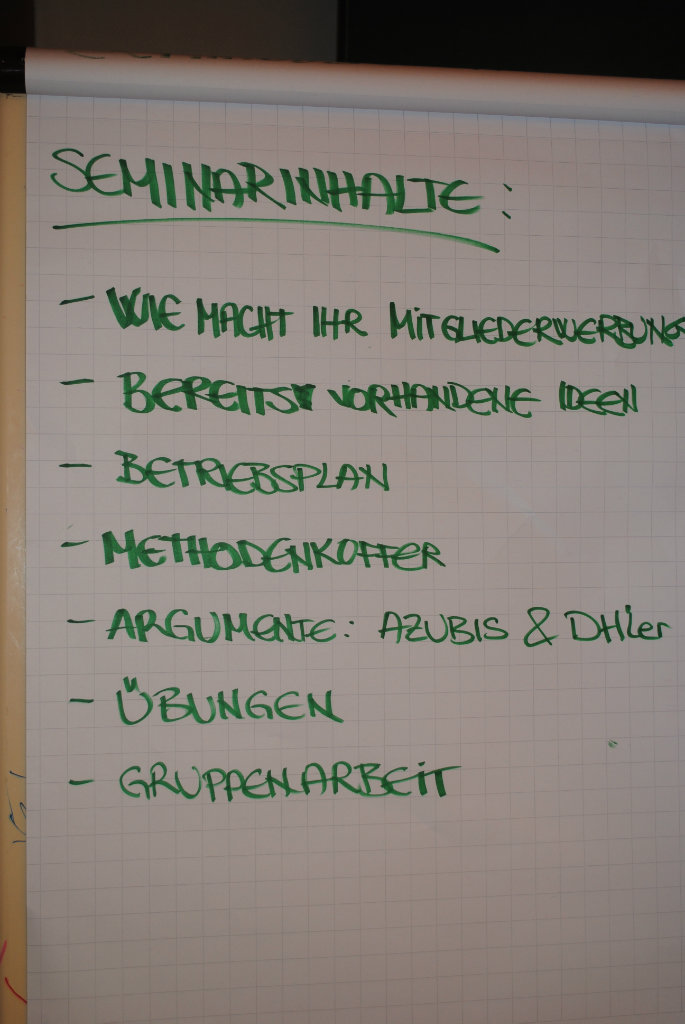 SEMINARINHALTE:
- WIE MACHT IHR MITGLIEDERWERBUNG
- BEREITS VORHANDENE IDEEN
- BETRIEBSPLAN
- METHODENKOFFER
- ARGUMENTE: AZUBIS & DHler
- ÜBUNGEN
- GRUPPENARBEIT